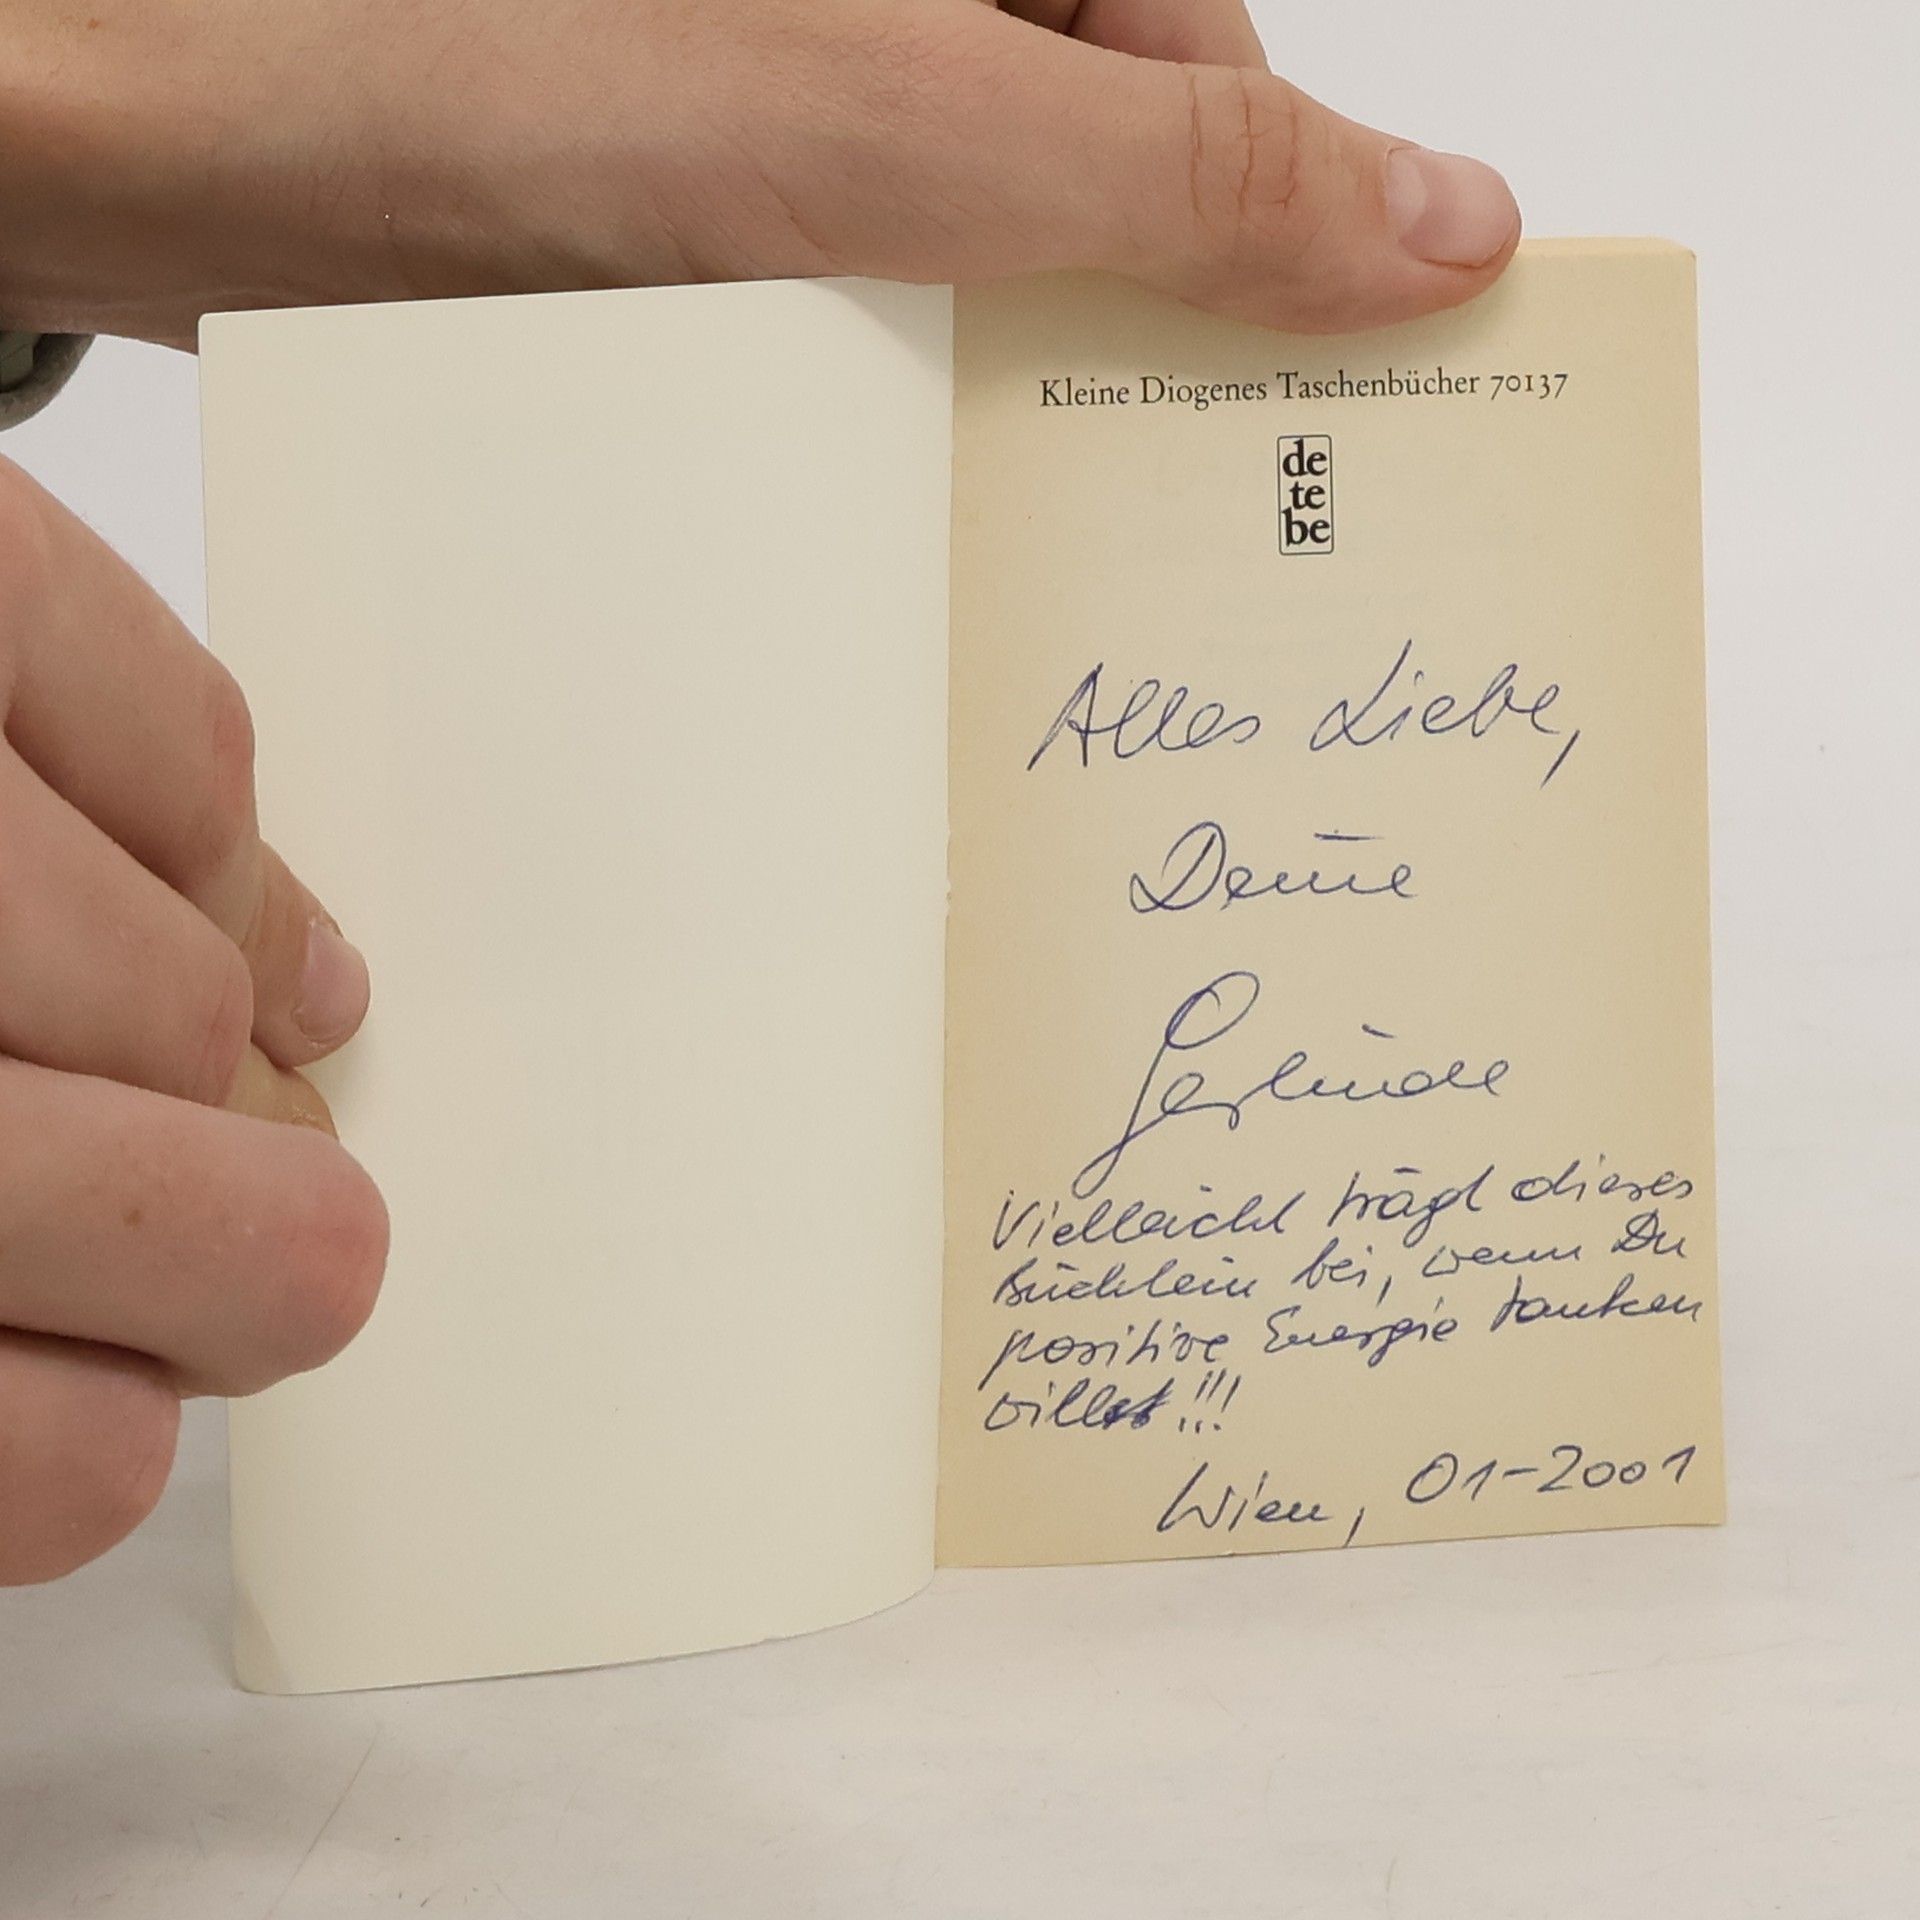 Kleine Diogenes Taschenbücher 70137
de
te
be
Alles Liebe,
Deine
Gerlinde
Vielleicht trägt dieses
Büchlein bei, wenn Du
positive Energie tanken
willst!!!
Wien, 01-2001